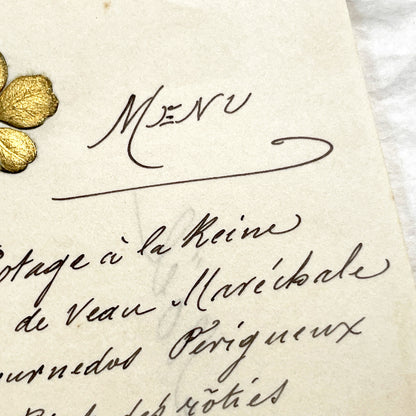 MENU
Potage à la Reine
de Veau Maréchale
urnedos Périgueux
rôties